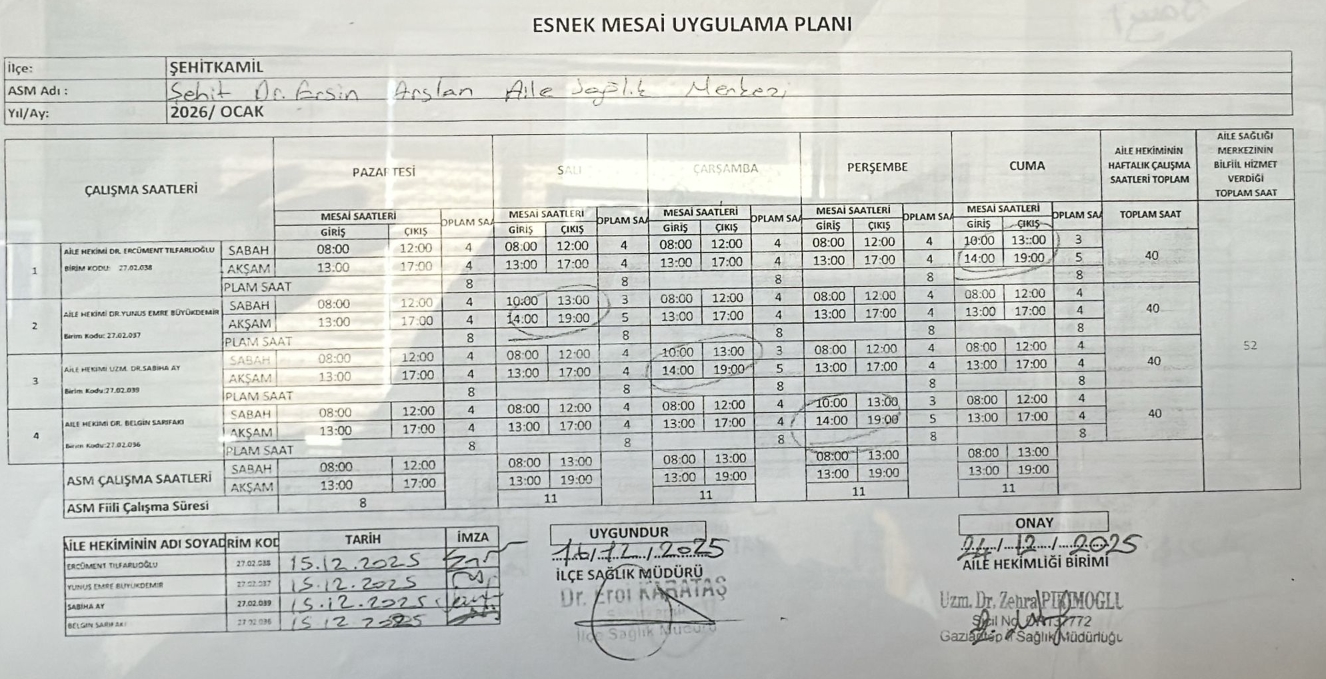 ESNEK MESAİ UYGULAMA PLANI
İlçe: ŞEHİTKAMİL
ASM Adı : Şehit Dr. Ersin Arslan Aile Sağlık Merkezi
Yıl/Ay: 2026/ OCAK
ÇALIŞMA SAATLERİ PAZARTESİ SALI ÇARŞAMBA PERŞEMBE CUMA AİLE HEKİMİNİN HAFTALIK ÇALIŞMA SAATLERİ TOPLAM AİLE SAĞLIĞI MERKEZİNİN BİLFİİL HİZMET VERDİĞİ TOPLAM SAAT
MESAİ SAATLERİ OPLAM SAA MESAİ SAATLERİ OPLAM SAA MESAİ SAATLERİ OPLAM SAA MESAİ SAATLERİ OPLAM SAA MESAİ SAATLERİ OPLAM SAA TOPLAM SAAT
GİRİŞ ÇIKIŞ GİRİŞ ÇIKIŞ GİRİŞ ÇIKIŞ GİRİŞ ÇIKIŞ GİRİŞ ÇIKIŞ
1 AİLE HEKİMİ DR. ERCÜMENT TILFARLIOĞLU SABAH 08:00 12:00 4 08:00 12:00 4 08:00 12:00 4 08:00 12:00 4 10:00 13::00 3 40
BİRİM KODU: 27.02.038 AKŞAM 13:00 17:00 4 13:00 17:00 4 13:00 17:00 4 13:00 17:00 4 14:00 19:00 5
PLAM SAAT 8 8 8 8 8
2 AİLE HEKİMİ DR.YUNUS EMRE BÜYÜKDEMİR SABAH 08:00 12:00 4 10:00 13:00 3 08:00 12:00 4 08:00 12:00 4 08:00 12:00 4 40
Birim Kodu: 27.02.037 AKŞAM 13:00 17:00 4 14:00 19:00 5 13:00 17:00 4 13:00 17:00 4 13:00 17:00 4
PLAM SAAT 8 8 8 8 8
3 AİLE HEKİMİ UZM. DR.SABİHA AY SABAH 08:00 12:00 4 08:00 12:00 4 10:00 13:00 3 08:00 12:00 4 08:00 12:00 4 40 52
Birim Kodu:27.02.039 AKŞAM 13:00 17:00 4 13:00 17:00 4 14:00 19:00 5 13:00 17:00 4 13:00 17:00 4
PLAM SAAT 8 8 8 8 8
4 AİLE HEKİMİ DR. BELGİN SARIFAKI SABAH 08:00 12:00 4 08:00 12:00 4 08:00 12:00 4 10:00 13:00 3 08:00 12:00 4 40
Birim Kodu:27.02.036 AKŞAM 13:00 17:00 4 13:00 17:00 4 13:00 17:00 4 14:00 19:00 5 13:00 17:00 4
PLAM SAAT 8 8 8 8 8
ASM ÇALIŞMA SAATLERİ SABAH 08:00 12:00 08:00 13:00 08:00 13:00 08:00 13:00 08:00 13:00
AKŞAM 13:00 17:00 13:00 19:00 13:00 19:00 13:00 19:00 13:00 19:00
ASM Fiili Çalışma Süresi 8 11 11 11 11
AİLE HEKİMİNİN ADI SOYAD RİM KOD TARİH İMZA
ERCÜMENT TILFARLIOĞLU 27.02.038 15.12.2025
YUNUS EMRE BÜYÜKDEMİR 27.02.037 15.12.2025
SABİHA AY 27.02.039 15.12.2025
BELGİN SARIFAKI 27.02.036 15 12 2025
UYGUNDUR
16/12/2025
İLÇE SAĞLIK MÜDÜRÜ
Dr. Erol KARATAŞ
İlçe Sağlık Müdürü
ONAY
24/12/2025
AİLE HEKİMLİĞİ BİRİMİ
Uzm. Dr. Zehra
Gaziantep İl Sağlık Müdürlüğü